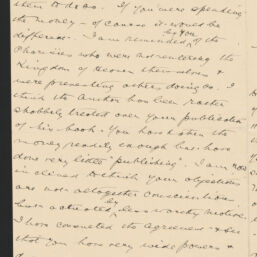 them to do so. If you were spending
the money - of course it would be
different. I am reminded by you of the
Pharisees who were not entering the
Kingdom of Heaven themselves &
were preventing others doing so. I
think the Author has been rather
shabbily treated over your publication
of his book. You have taken the
money readily enough but have
done very little "publishing". I am now
inclined to think your objections
are not altogether conscientious
but actuated by less worthy motives.
I have consulted the Agreement & see
that you have very wide powers &